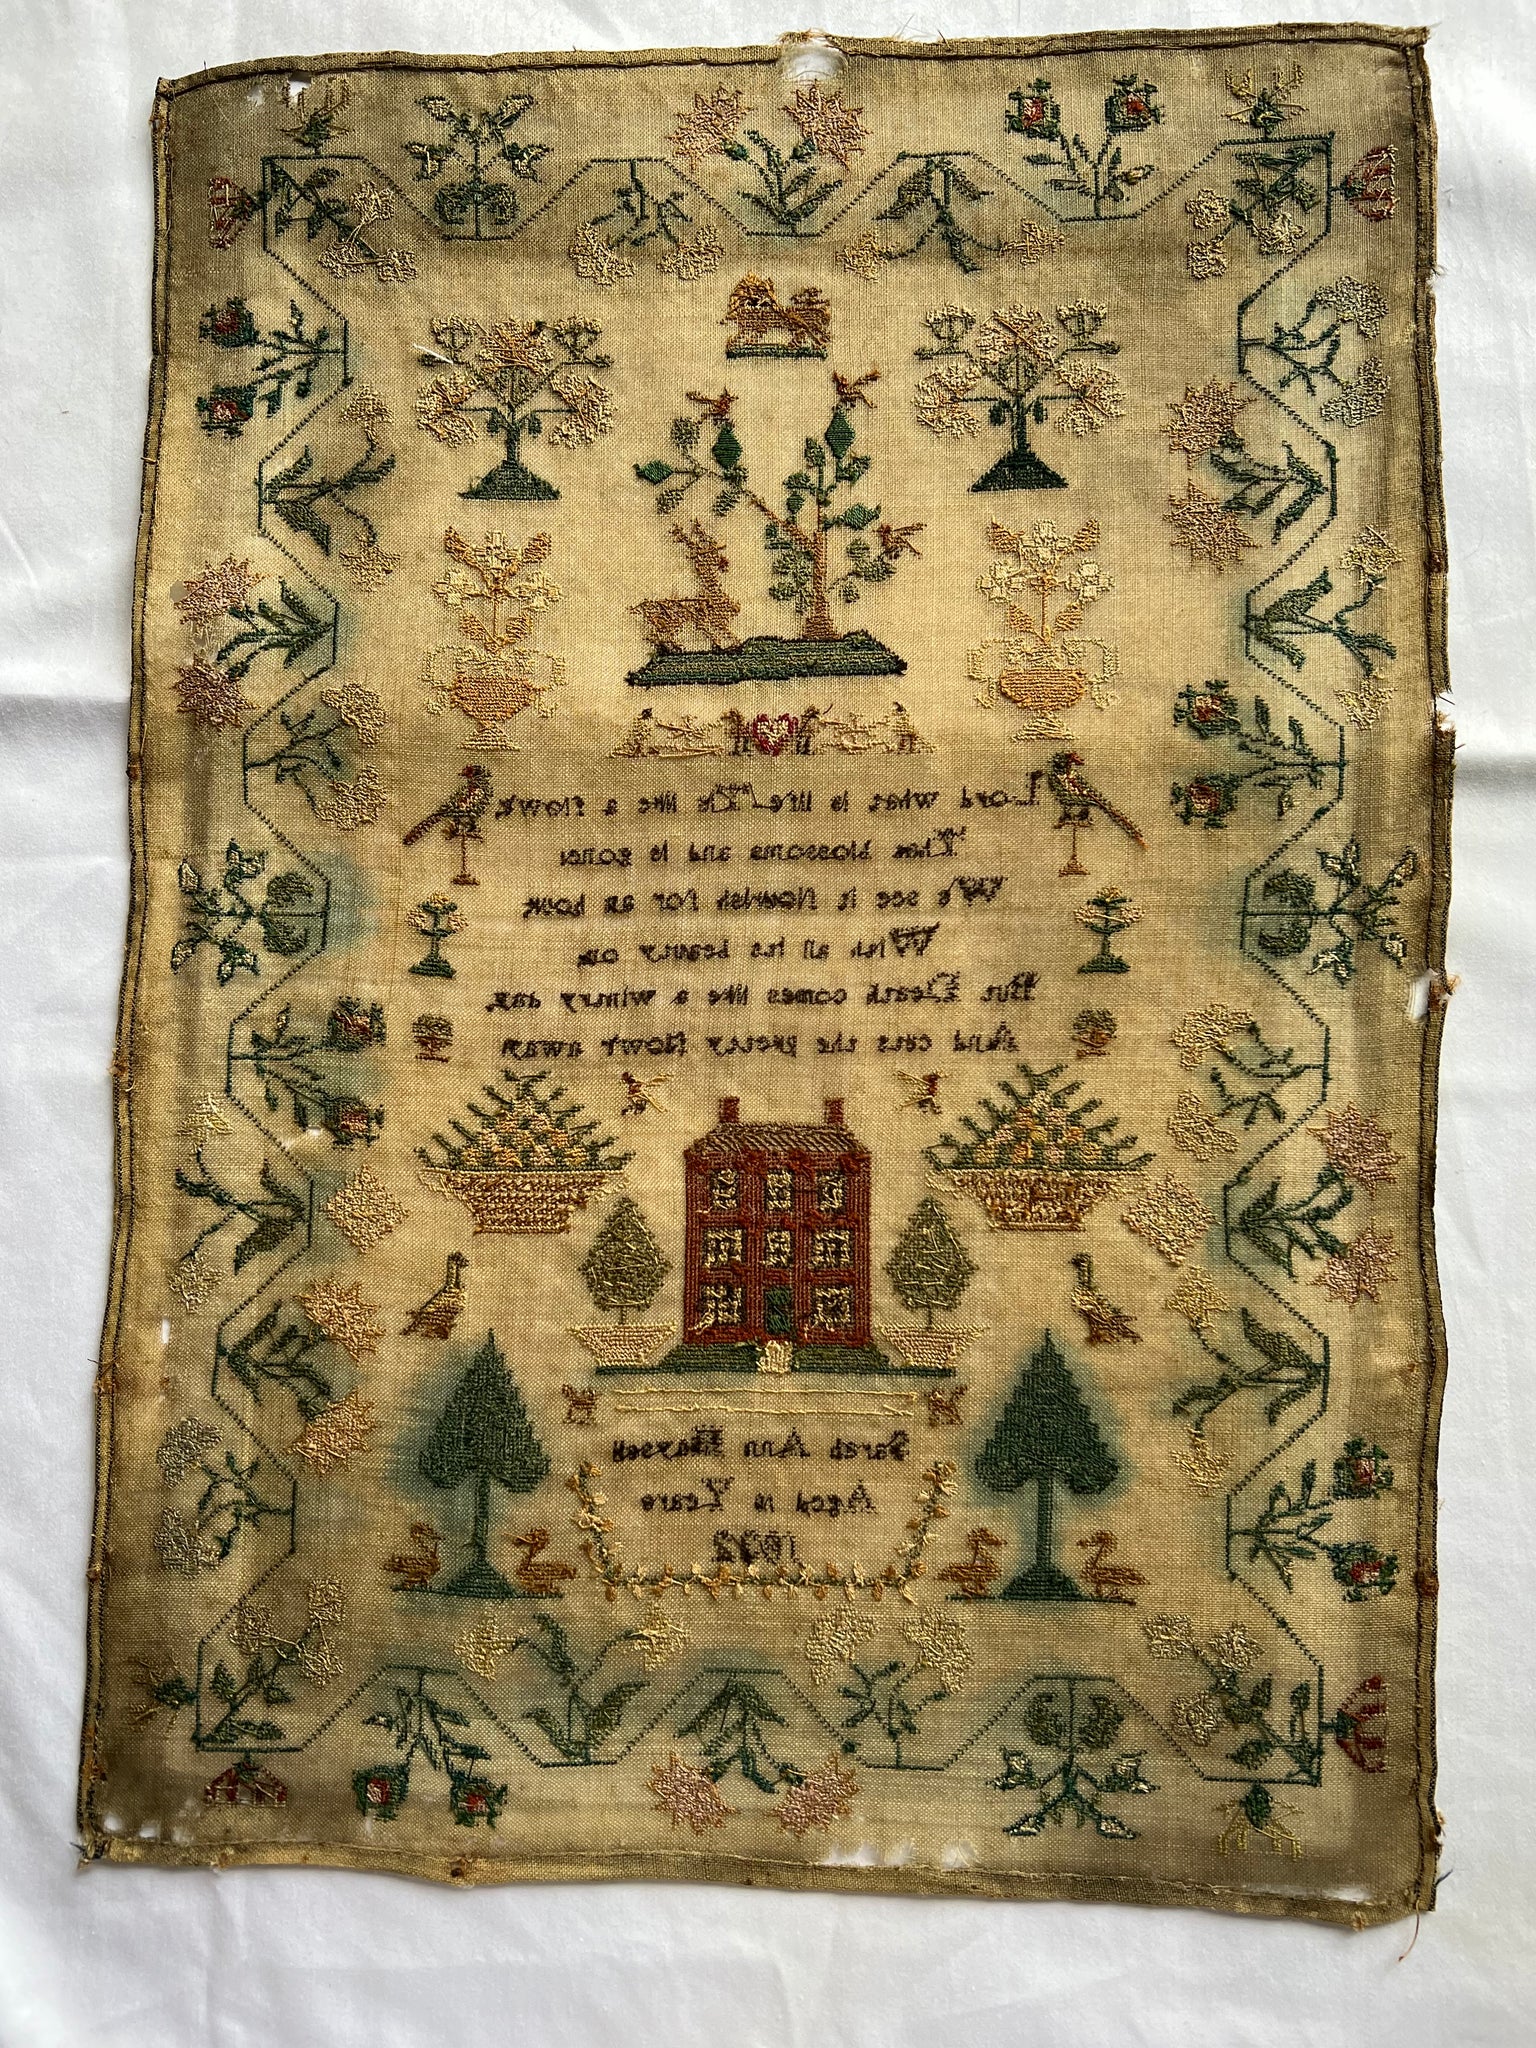 Lord what is life Tis like a flow'r,
That blossoms and is gone;
We see it flourish for an hour
With all its beauty on.
But Death comes like a wintry day,
And cuts the pretty flow'r away
Sarah Ann
Aged 10 Years
1832